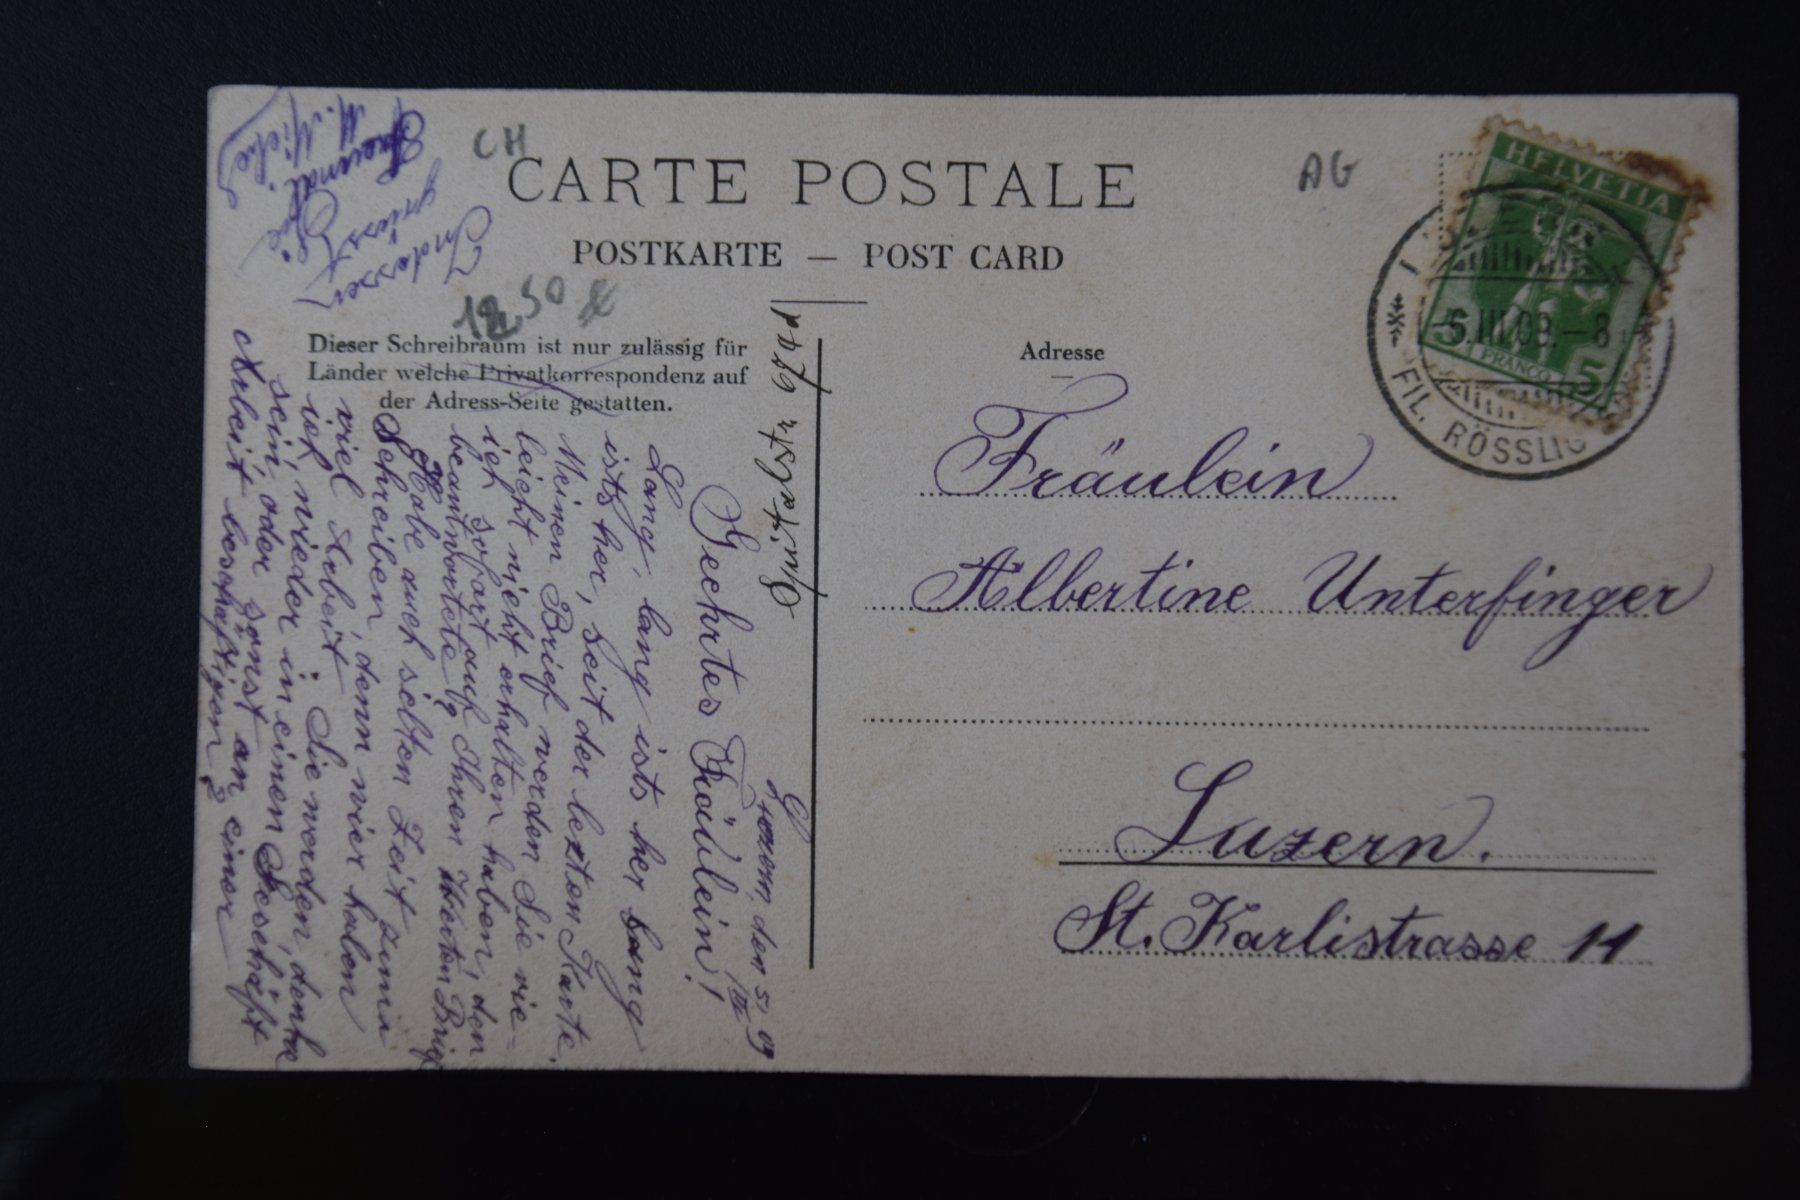 CH
CARTE POSTALE
AG
POSTKARTE — POST CARD
12.50
Dieser Schreibraum ist nur zulässig für
Länder welche Privatkorrespondenz auf
der Adress-Seite gestatten.
Adresse
HELVETIA
5 FRANCO 5
-5.III.09.-8
FIL. RÖSSLIG
Fräulein
Albertine Unterfinger
Luzern.
St. Karlistrasse 11
Luzern, den 5/III 09
Geehrtes Fräulein!
Lang, lang ists her lang
ists her, seit der lezten Karte.
Meinen Brief werden Sie vie-
leicht nicht erhalten haben, den
ich sofort auf Ihren
beantwortete.
Habe auch selten Zeit zum
Schreiben, denn wier haben
viel Arbeit. Sie werden, denke
ich, wieder in einen Geschäft
sein, oder sonst an einer
Arbeit beschäftigen?
Indessen
grüsst
Sie
Freundl.